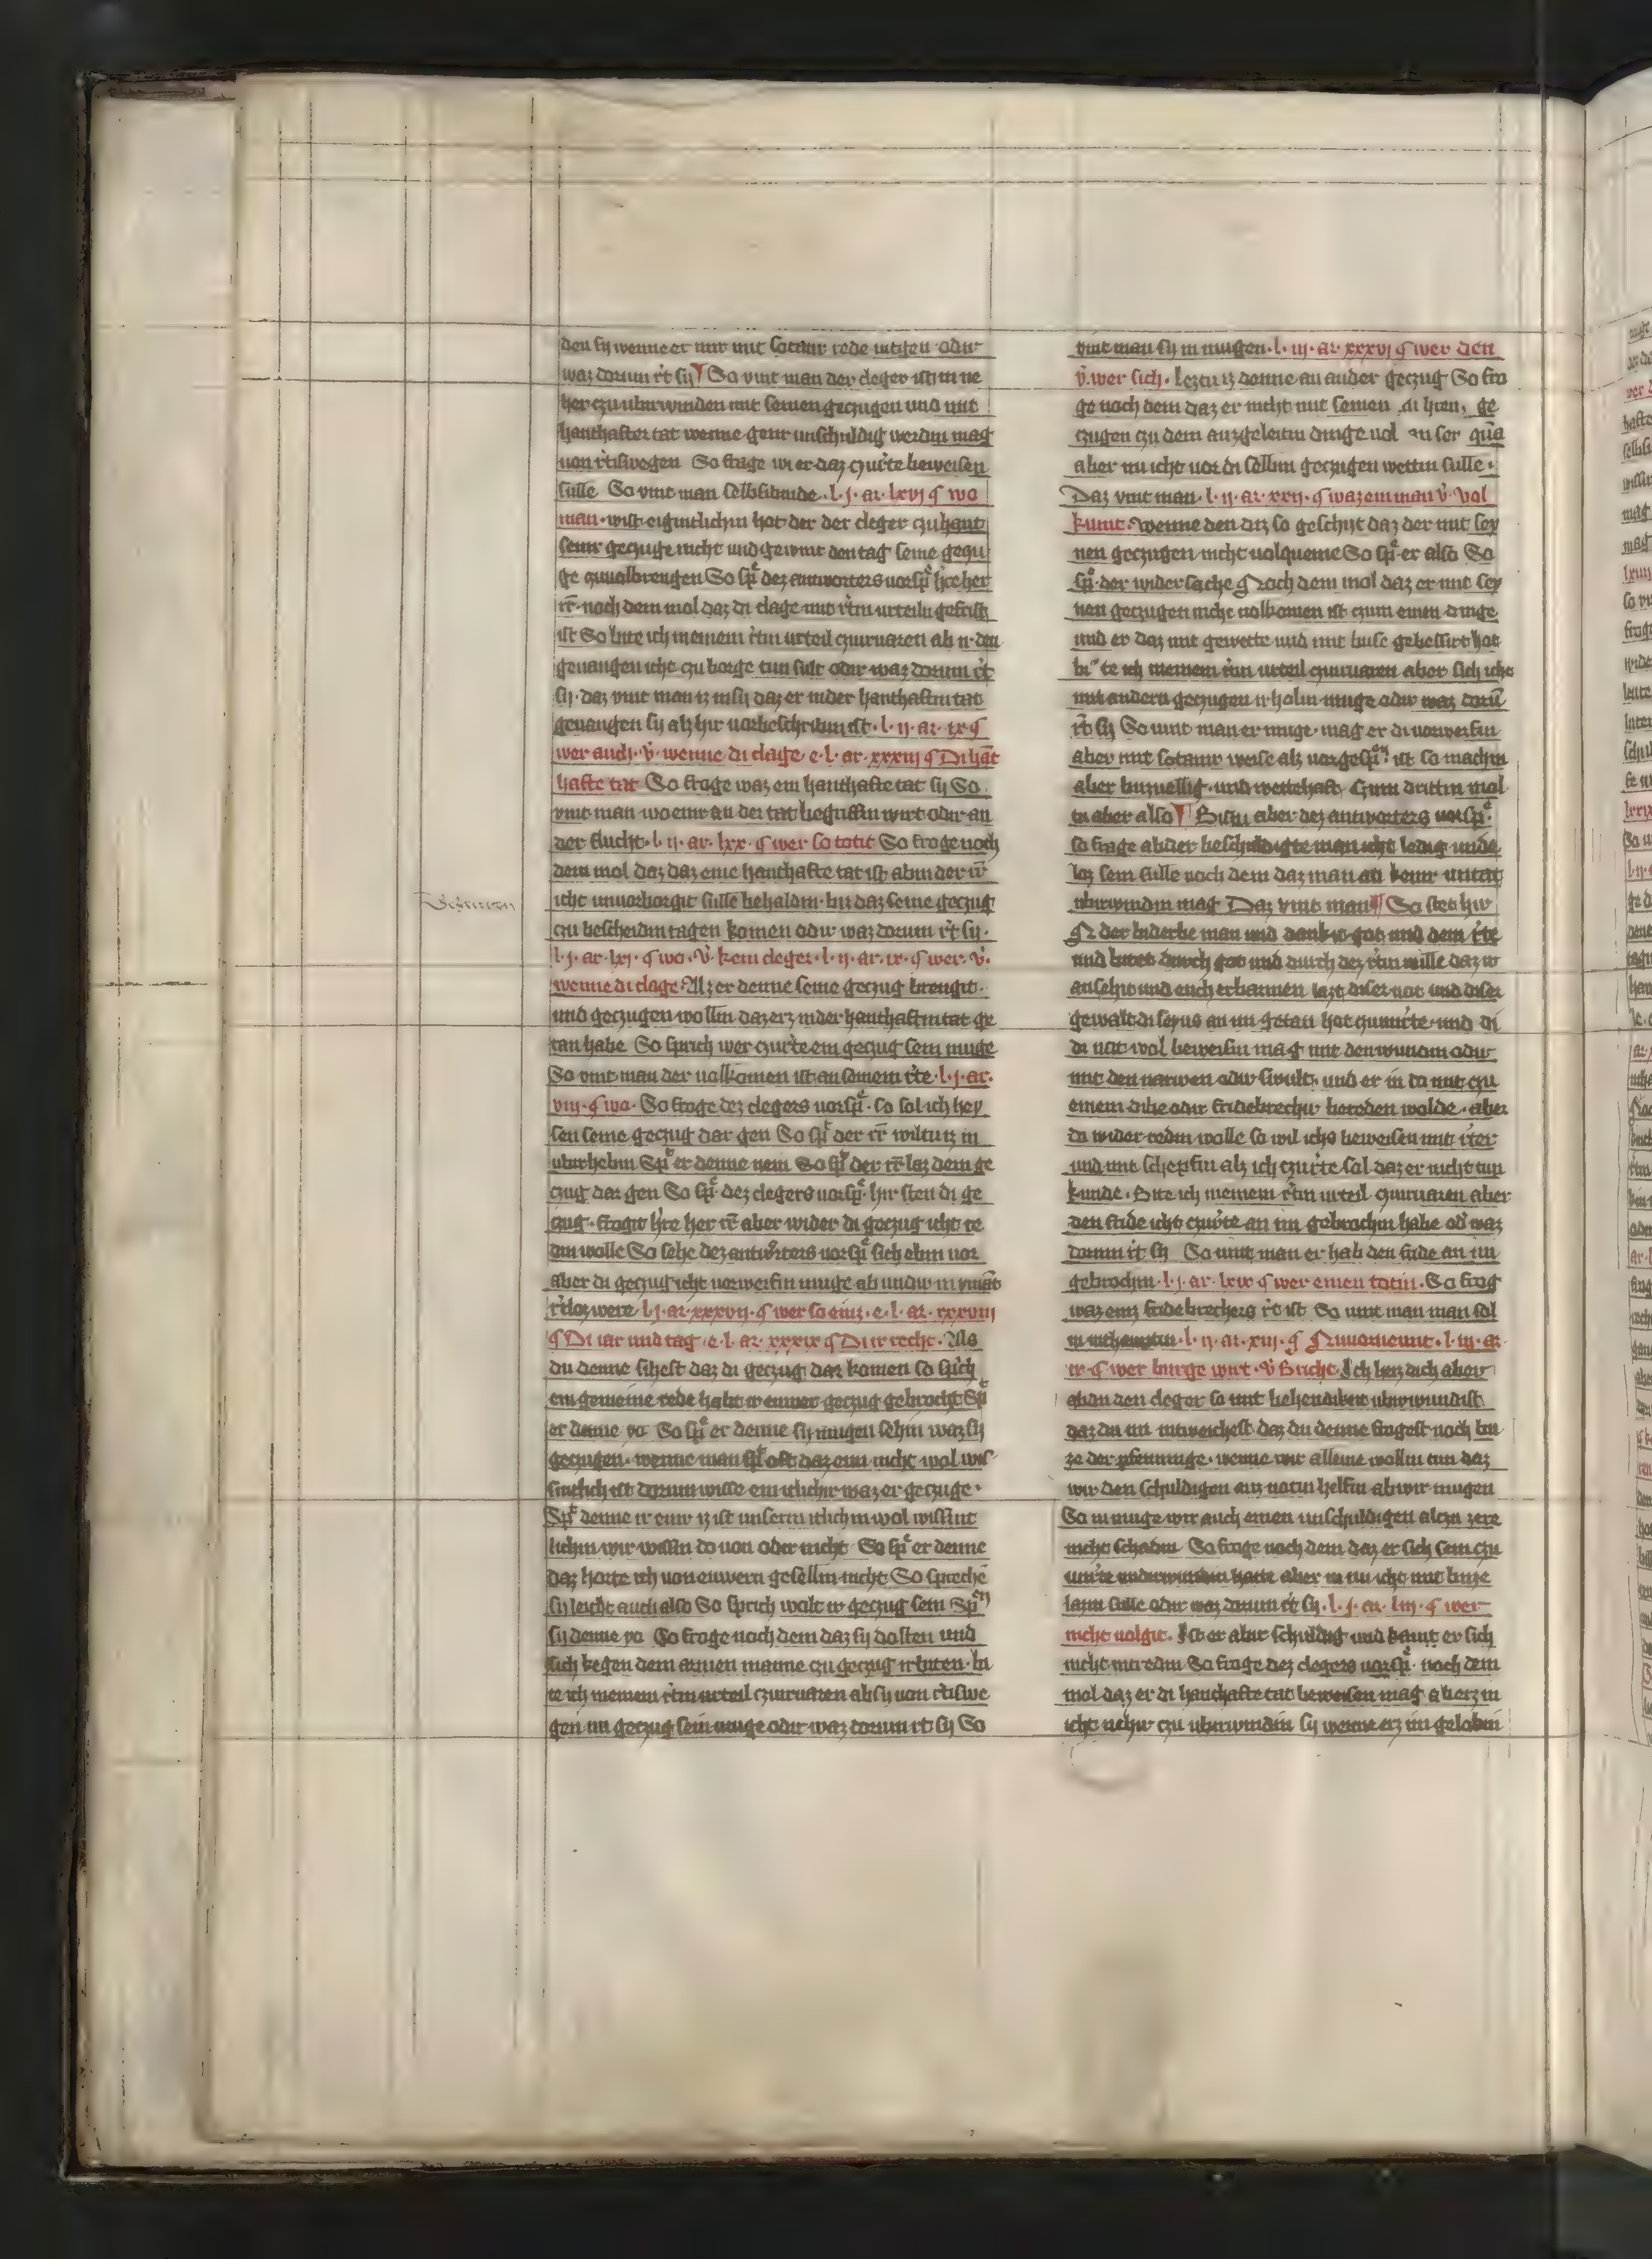 den sy wenne er nur mit sotanir rede intgen odir
waz dorum rt sy So vint man der cleger ist in ne
her czu ubirwinden mit seinen geczugen und mit
hanthafter tat wenne genr unschuldig werdin mag
von rtiswegen So frage wi er daz czu rte beweisen
sulle So vint man selbsibinde l. j. ar. lxvj ¶ wo
man wist eigintlichin hot der der cleger czuhant
seinr geczuge nicht und gewint den tag seine geczu
ge czuvolbrengen So sp dez antworters vorsp hre her
rr noch dem mol daz di clage mit rtin urteiln gefrist
ist So bite ich meinem rtin urteil czuvuaren ab ir den
gevangen icht czu borge tun sult odir waz dorum rt
sy daz vint man iz insy daz er inder hanthaftin tat
gevangen sy alz hir vorbeschribin ist l. ij. ar. ix ¶
wer auch v wenne di clage e. l. ar. xxxiij ¶ Di hat
hafte tat So froge waz ein hanthafte tat sy So
vint man wo einr an der tat begriffin wirt odir an
der flucht l. ij. ar. lxx. ¶ wer so totit So froge noch
dem mol daz daz eine hanthafte tat ist ab in der rr
icht unvorborgit sulle behaldin biz daz seine geczug
czu bescheidin tagen komen odir waz dorum rt sy
l. j. ar. lxj. ¶ wo. v. kein cleger. l. ij. ar. ix. ¶ wer. v.
wenne di clage Alz er denne seine geczug brengit
und geczugen wollin daz erz inder hanthaftin tat ge
tan habe So sprich wer czu rte ein geczug sein muge
So vint man der volkomen ist an seinem rte l. j. ar.
viij. ¶ wo. So froge dez clegers vorsp. so sol ich hey
sen seine geczug dar gen So sp der rr wiltu iz in
ubirhebin Sp er denne nein So sp der rr laz dein ge
czug dar gen So sp dez clegers vorsp hir sten di ge
czug frogit hre her rr aber wider di geczug icht re
din wolle So sehe dez antworters vorsp sich ebin vor
aber di geczug icht vorweisin muge ab undir in ymant
rtloz were l. j. ar. xxxvij. ¶ wer so einz. e. l. ar. xxxviij
¶ Di iar und tag e. l. ar. xxxix ¶ Di ir recht. Als
du denne sihest daz di geczug dar komen so sprich
ein gemeine rede habt ir euwer geczug gebrocht Sp
er denne yo So sp er denne sy mugen sehin waz sy
geczugen wenne man sp oft daz ein nicht wol wis
sintlich ist dorum wisse ein itlichir waz er geczuge
Sp denne ir einr iz ist unserm itlichin wol wissint
lichin wir wissin do von odir nicht So sp er denne
daz horte ich von euwern gesellin nicht So spreche
sy leicht auch also So sprich wolt ir geczug sein Sp
sy denne yo So froge noch dem daz sy dosten und
sich kegen dem armen manne czu geczug irbiten bi
te ich meinem rtin urteil czuvuaren ab sy von rtiswe
gen im geczug sein muge odir waz dorum rt sy So
vint man sy in mugen. l. iij. ar. xxxvj ¶ wer den
v. wer sich. lezt iz denne an ander geczug So fro
ge noch dem daz er nicht mit seinen ge
czugen czu dem auzgeleitin dinge vol
aber nu icht vor di selbin geczugen wettin sulle
Daz vint man. l. ij. ar. xxij. ¶ waz ein man v. vol
kumt. wenne den diz so geschyt daz der mit sey
nen geczugen nicht volqueme So sp er also So
sp der widersache Noch dem mol daz er mit sey
nen geczugen nicht volkomen ist czum einen dinge
und er daz mit gewette und mit buse gebessirt hot
bi te ich meinem rtin urteil czuvuaren aber sich icht
mit andern geczugen irholin muge odir waz doru
rt sy So vint man er muge mag er di vorweisin
aber mit sotanir weise alz vorgesp ist so mach in
aber buzvellig und wettehaft Czum drittin mol
tu aber also Bistu aber dez antworters vorsp
so frage ab der beschuldigte man icht ledig unde
loz sein sulle noch dem daz man an keinr untat
ubirwindin mag Daz vint man So stet hir
N der biderbe man und dankit got und dem rte
und bitet durch got und durch dez rtin wille daz ir
ansehit und euch erbarmen lazt diser not und diser
gewalt di seyns an im getan hot czu unrte und di
di not wol beweisin mag mit den wundin odir
mit den narwen odir swulst und er in do mit czu
einem dibe odir fridebrechir bereden wolde aber
do wider redin wolle so wil ichs beweisen mit rter
und mit schepfin alz ich czu rte sol daz er nicht tun
kunde. Bite ich meinem rtin urteil czuvuaren aber
den fride icht czu rte an im gebrochin habe od waz
dorum rt sy So vint man er hab den fride an im
gebrochin l. j. ar. lxix ¶ wer einen totin. So frog
waz einz fridebrechers rt ist So vint man man sol
in inthauptin l. ij. ar. xiij. ¶ Nu vornemt. l. iij. ar.
ix ¶ wer burge wirt v Bricht. Ich lon dich aber
abdu den cleger so mit behendikeit ubirwindist
daz du im intweichest daz du denne frogest noch bu
ze der pfenninge wenne wir alleine wollin tun daz
wir den schuldigen auz notin helfin ab wir mugen
So in muge wir auch einen unschuldigen alczu zere
nicht schadin So froge noch dem daz er sich sein czu
unrte underwundin hatte aber in nu icht mit buze
lazin sulle odir waz dorum rt sy. l. j. ar. liij. ¶ wer
nicht volgit. Ist er abir schuldig und kannt er sich
nicht inredin So froge dez clegers vorsp. noch dem
mol daz er di hanthafte tat beweisen mag aberz in
icht nehir czu ubirwindin sy wenne erz im gelobin